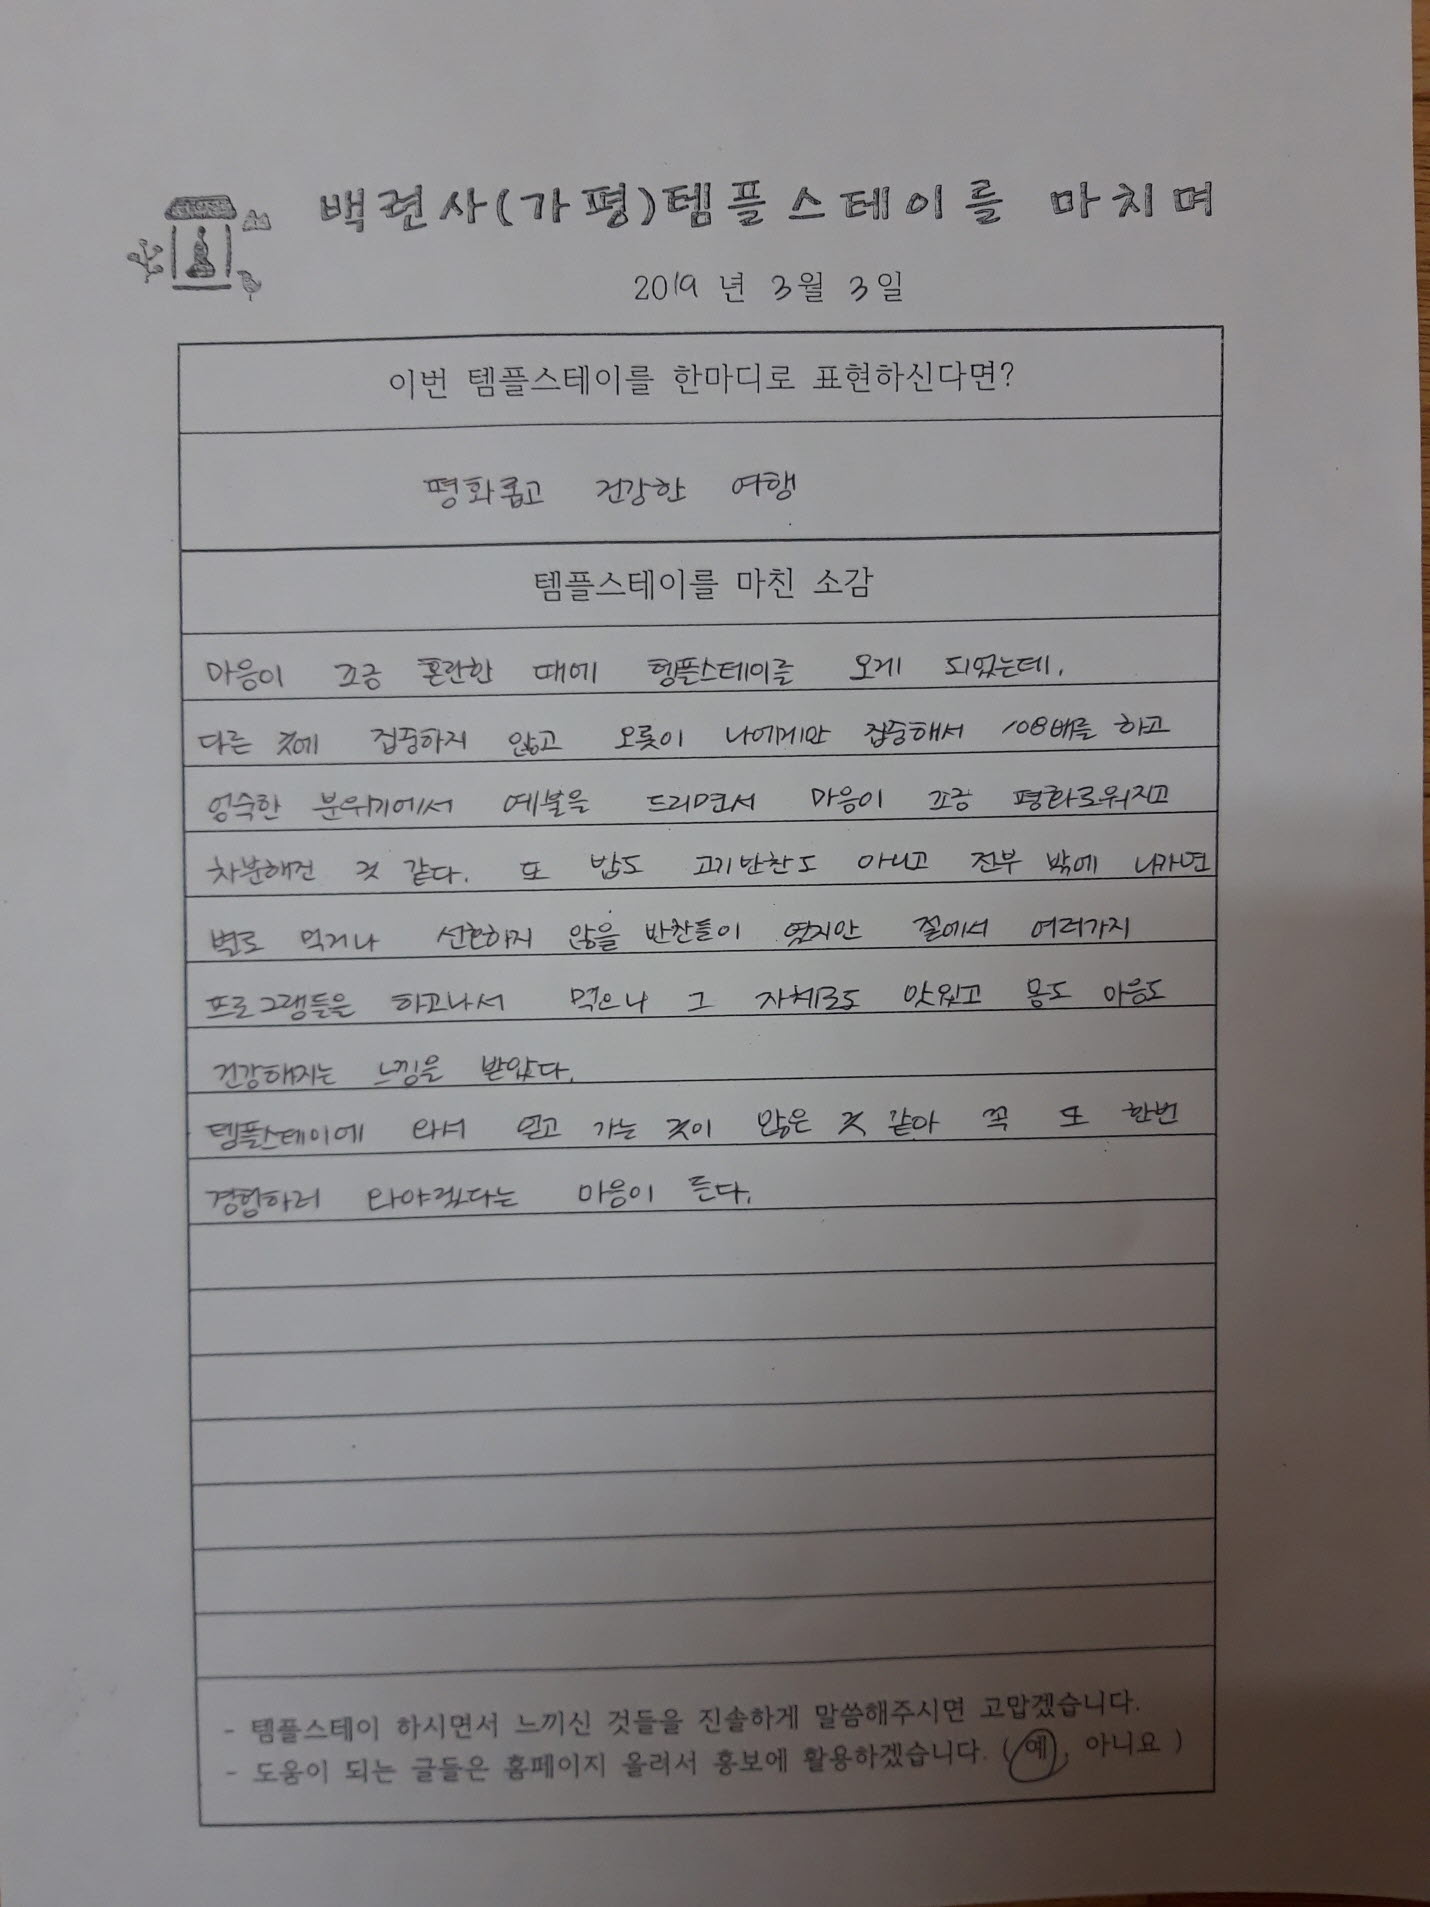 백련사(가평)템플스테이를 마치며
2019 년 3월 3일
이번 템플스테이를 한마디로 표현하신다면?
평화롭고 건강한 여행
템플스테이를 마친 소감
마음이 조금 혼란한 때에 템플스테이를 오게 되었는데,
다른 것에 집중하지 않고 오롯이 나에게만 집중해서 108배를 하고
엄숙한 분위기에서 예불을 드리면서 마음이 조금 평화로워지고
차분해진 것 같다. 또 밥도 고기반찬도 아니고 전부 밖에 나가면
별로 먹거나 선호하지 않을 반찬들이 였지만 절에서 여러가지
프로그램들을 하고나서 먹으니 그 자체로도 맛있고 몸도 마음도
건강해지는 느낌을 받았다.
템플스테이에 와서 얻고 가는 것이 많은 것 같아 꼭 또 한번
경험하러 와야겠다는 마음이 든다.
- 템플스테이 하시면서 느끼신 것들을 진솔하게 말씀해주시면 고맙겠습니다.
- 도움이 되는 글들은 홈페이지 올려서 홍보에 활용하겠습니다. ( 예, 아니요 )